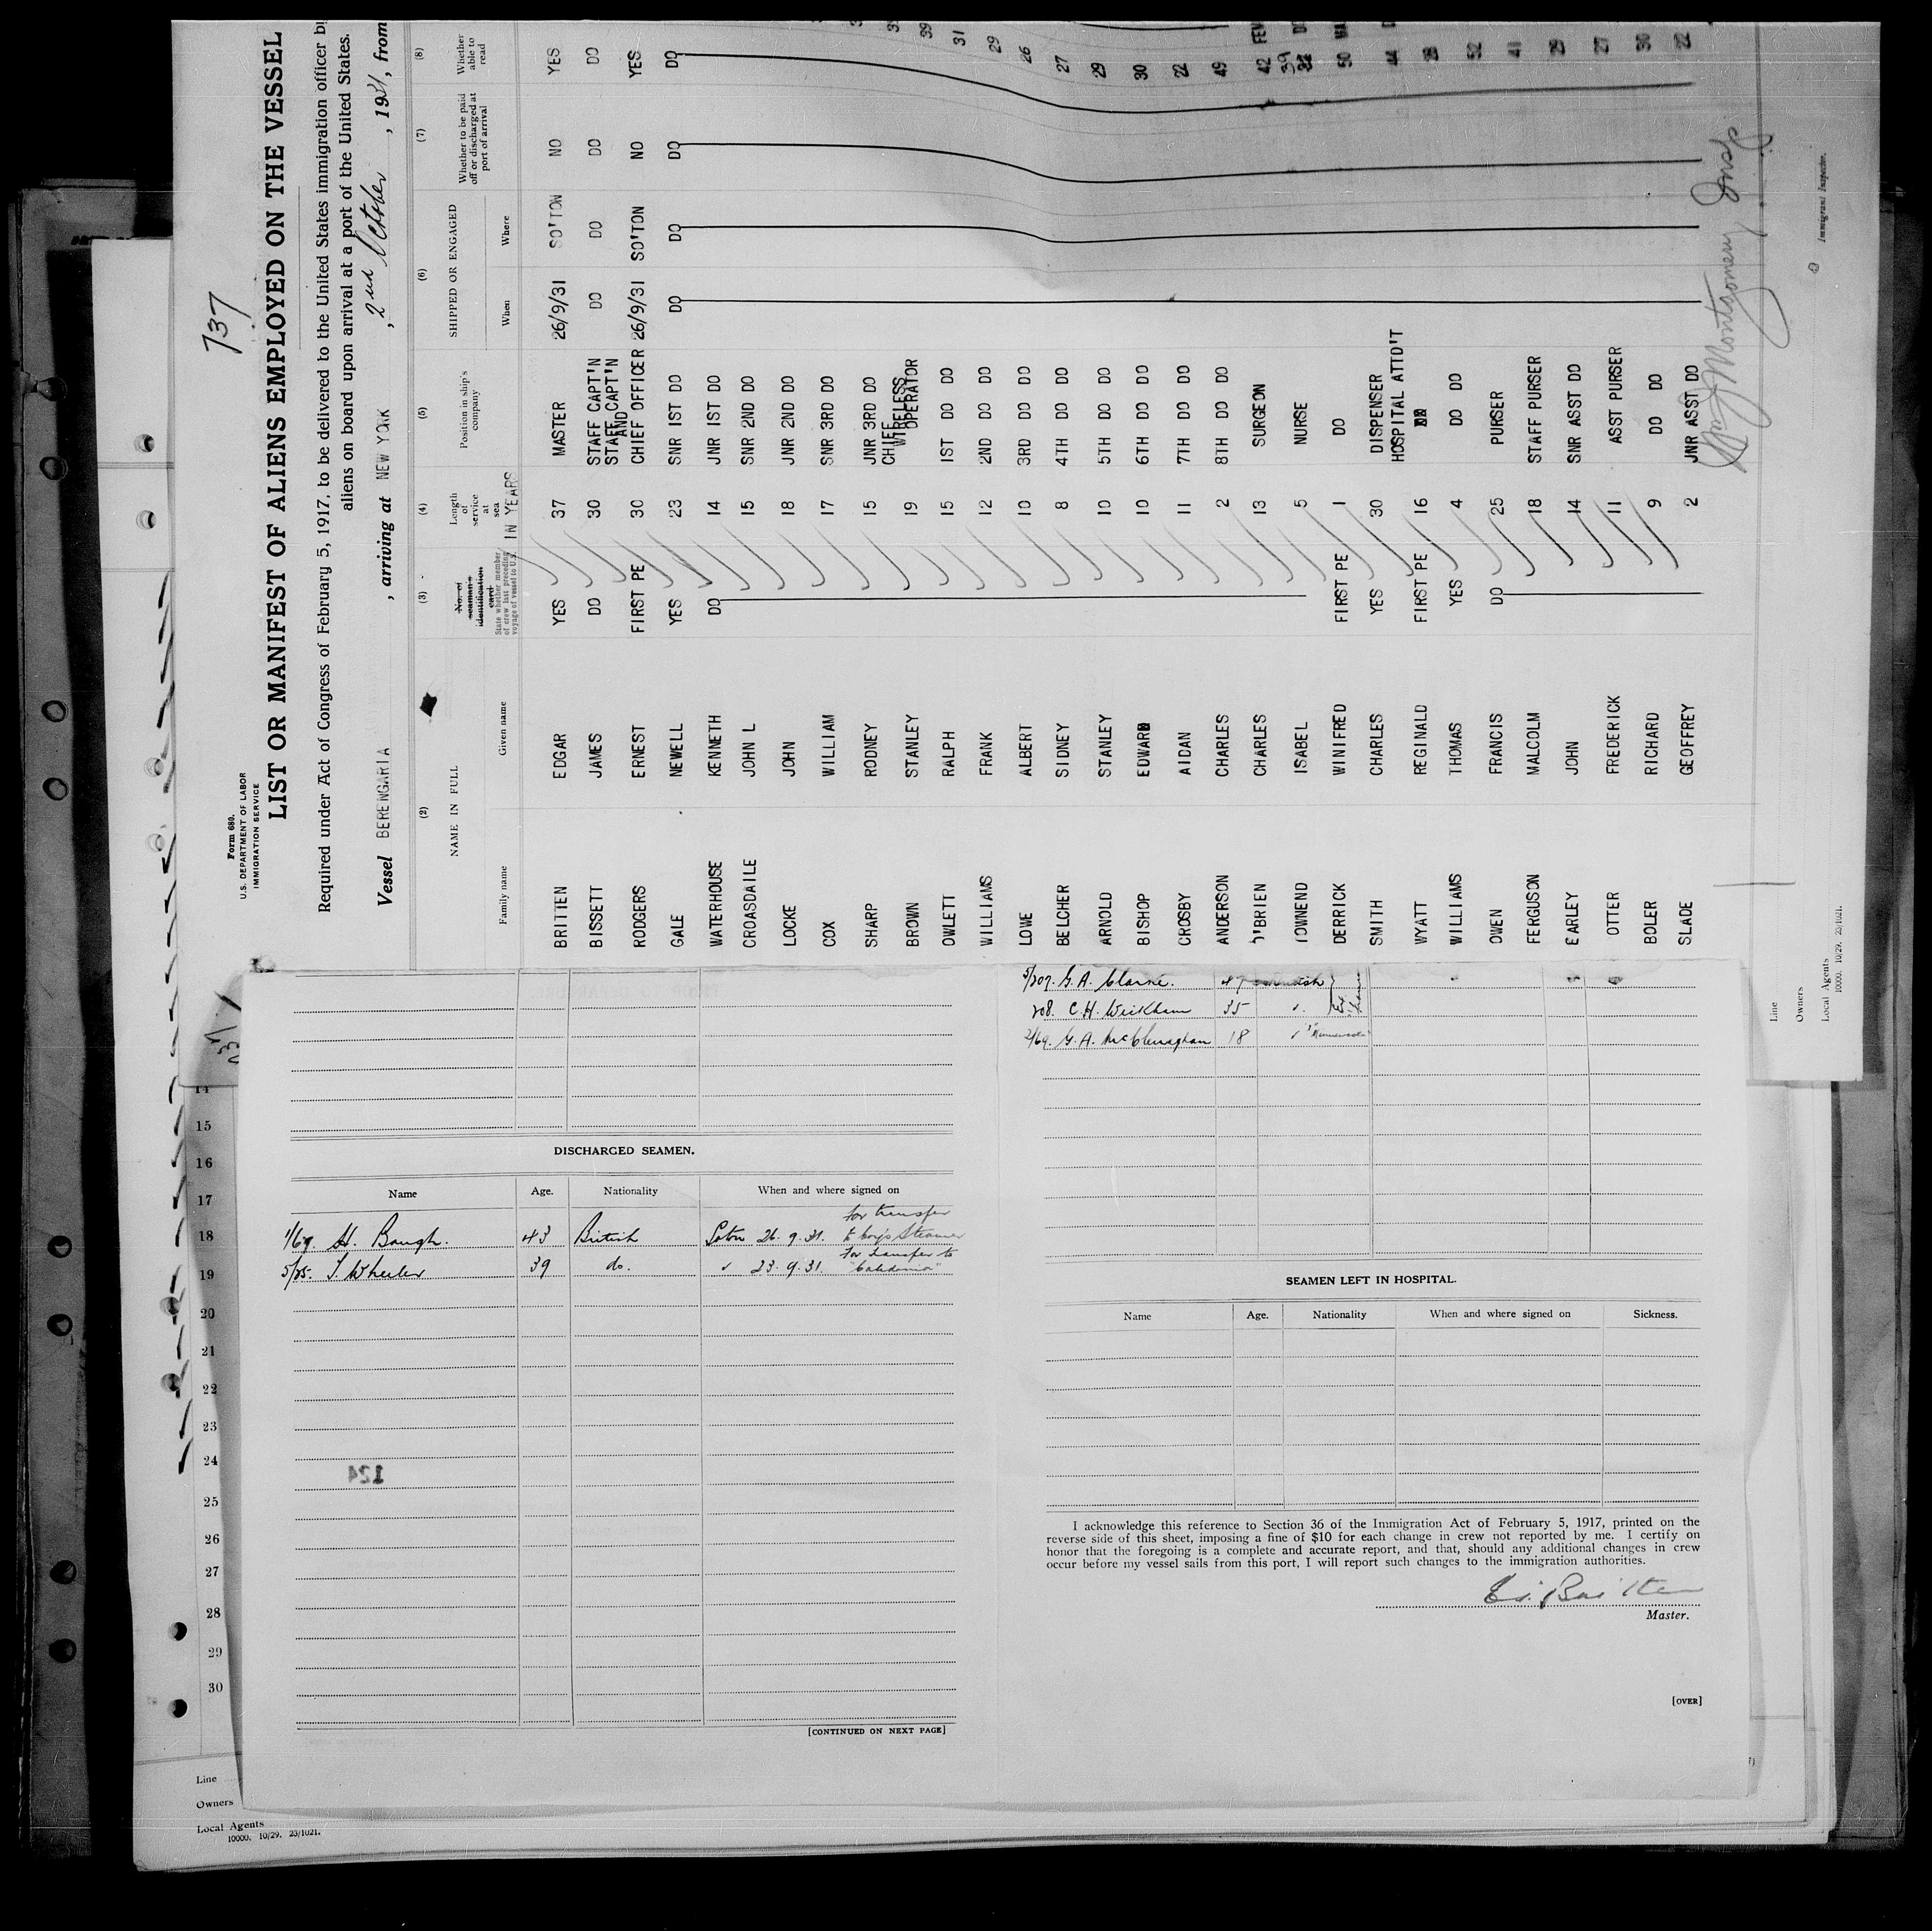 737
Form 680.
U.S. DEPARTMENT OF LABOR
IMMIGRATION SERVICE
LIST OR MANIFEST OF ALIENS EMPLOYED ON THE VESSEL
Required under Act of Congress of February 5, 1917, to be delivered to the United States immigration officer
aliens on board upon arrival at a port of the United States.
Vessel BERENGARIA , arriving at NEW YORK , 2nd October , 1931, from
(2) (3) (4) (5) (6) (7) (8)
NAME IN FULL
Family name Given name
No. of seaman's identification card
State whether member of crew last preceding voyage of vessel to U.S.
Length of service at sea IN YEARS
Position in ship's company
SHIPPED OR ENGAGED
When Where
Whether to be paid off or discharged at port of arrival
Whether able to read
BRITTEN EDGAR YES 37 MASTER 26/9/31 SO'TON NO YES
BISSETT JAMES DO 30 STAFF CAPT'N DO DO DO DO
RODGERS ERNEST FIRST PE 30 STAFF CAPT'N AND CHIEF OFFICER 26/9/31 SO'TON NO YES
GALE NEWELL YES 23 SNR 1ST DO DO DO DO DO
WATERHOUSE KENNETH DO 14 JNR 1ST DO
CROASDAILE JOHN L 15 SNR 2ND DO
LOCKE JOHN 18 JNR 2ND DO
COX WILLIAM 17 SNR 3RD DO
SHARP RODNEY 15 JNR 3RD DO
BROWN STANLEY 19 CHIEF WIRELESS OPERATOR
OWLETT RALPH 15 1ST DO DO 31
WILLIAMS FRANK 12 2ND DO DO 29
LOWE ALBERT 10 3RD DO DO 26
BELCHER SIDNEY 8 4TH DO DO 27
ARNOLD STANLEY 10 5TH DO DO 29
BISHOP EDWARD 10 6TH DO DO 30
CROSBY AIDAN 11 7TH DO DO 22
ANDERSON CHARLES 2 8TH DO DO 49
O'BRIEN CHARLES 13 SURGEON 42
TOWNEND ISABEL 5 NURSE 39
DERRICK WINIFRED FIRST PE 1 DO 50
SMITH CHARLES YES 30 DISPENSER 44
WYATT REGINALD FIRST PE 16 HOSPITAL ATTD'T
WILLIAMS THOMAS YES 4 DO DO 52
OWEN FRANCIS DO 25 PURSER 41
FERGUSON MALCOLM 18 STAFF PURSER 29
EARLEY JOHN 14 SNR ASST DO 27
OTTER FREDERICK 11 ASST PURSER 30
BOLER RICHARD 9 DO DO 22
SLADE GEOFFREY 2 JNR ASST DO
Montgomery Insp
Immigrant Inspector.
Line
Owners
Local Agents
10000. 10/29. 23/1021.
14
15
16
17
18
19
20
21
22
23
24
25
26
27
28
29
30
DISCHARGED SEAMEN.
Name Age. Nationality When and where signed on
1/69. H. Baugh. 43 British Soton 26.9.31. for transfer
5/25. T. Wheeler 39 do. " 23.9.31. for transfer to
"Caledonia"
124
[CONTINUED ON NEXT PAGE]
5/207. G. A. Clarke. 47
208. C. H. Wickham 35 "
2/69. G. A. McClenaghan 18 "
SEAMEN LEFT IN HOSPITAL.
Name Age. Nationality When and where signed on Sickness.
I acknowledge this reference to Section 36 of the Immigration Act of February 5, 1917, printed on the
reverse side of this sheet, imposing a fine of $10 for each change in crew not reported by me. I certify on
honor that the foregoing is a complete and accurate report, and that, should any additional changes in crew
occur before my vessel sails from this port, I will report such changes to the immigration authorities.
Master.
[OVER]
Line
Owners
Local Agents
10000. 10/29. 23/1021.